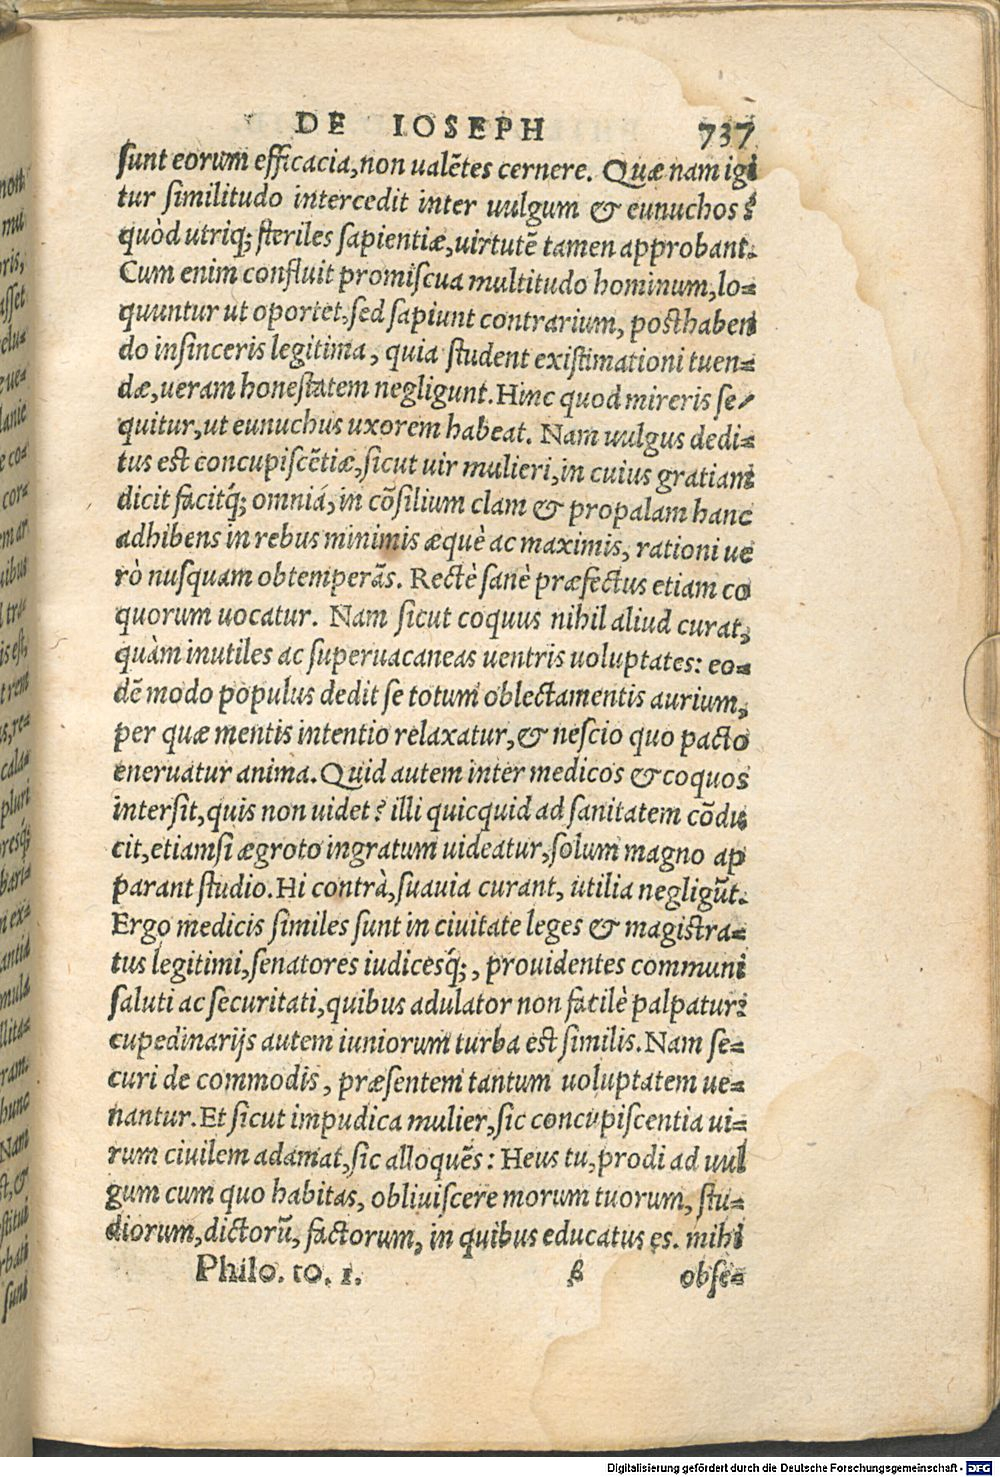 DE IOSEPH 737
sunt eorum efficacia, non ualẽtes cernere. Quæ nam igi
tur similitudo intercedit inter uulgum & eunuchos?
quòd utriq; steriles sapientiæ, uirtutẽ tamen approbant.
Cum enim confluit promiscua multitudo hominum, lo=
quuntur ut oportet, sed sapiunt contrarium, posthaben
do insinceris legitima, quia student existimationi tuen=
dæ, ueram honestatem negligunt. Hinc quod mireris se/
quitur, ut eunuchus uxorem habeat. Nam uulgus dedi=
tus est concupiscẽtiæ, sicut uir mulieri, in cuius gratiam
dicit facitq́; omniá, in cõsilium clam & propalam hanc
adhibens in rebus minimis æquè ac maximis, rationi ue
rò nusquam obtemperãs. Rectè sanè præfectus etiam co
quorum uocatur. Nam sicut coquus nihil aliud curat,
quàm inutiles ac superuacaneas uentris uoluptates: eo=
dẽ modo populus dedit se totum oblectamentis aurium,
per quæ mentis intentio relaxatur, & nescio quo pacto
eneruatur anima. Quid autem inter medicos & coquos
intersit, quis non uidet? illi quicquid ad sanitatem cõdu
cit, etiamsi ægroto ingratum uideatur, solum magno ap
parant studio. Hi contrà, suauia curant, utilia negligũt.
Ergo medicis similes sunt in ciuitate leges & magistra=
tus legitimi, senatores iudicesq́;, prouidentes communi
saluti ac securitati, quibus adulator non facilè palpatur:
cupedinarijs autem iuniorum turba est similis. Nam se=
curi de commodis, præsentem tantum uoluptatem ue=
nantur. Et sicut impudica mulier, sic concupiscentia ui=
rum ciuilem adamat, sic alloquẽs: Heus tu, prodi ad uul
gum cum quo habitas, obliuiscere morum tuorum, stu=
diorum, dictorũ, factorum, in quibus educatus es. mihi
Philo. to. 1. ß obse=
Digitalisierung gefördert durch die Deutsche Forschungsgemeinschaft - DFG